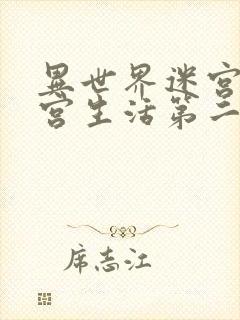 異世界迷宫
宫生活第二
席志江